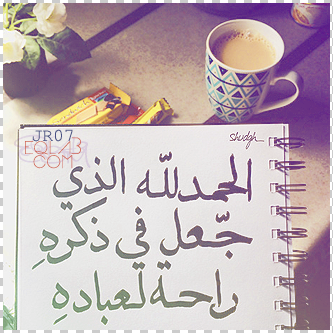 JR07
EQLA3
.COM
shudgh_
الحمدلله الذي
جّعل في ذكرهِ
راحة لعبادهِ